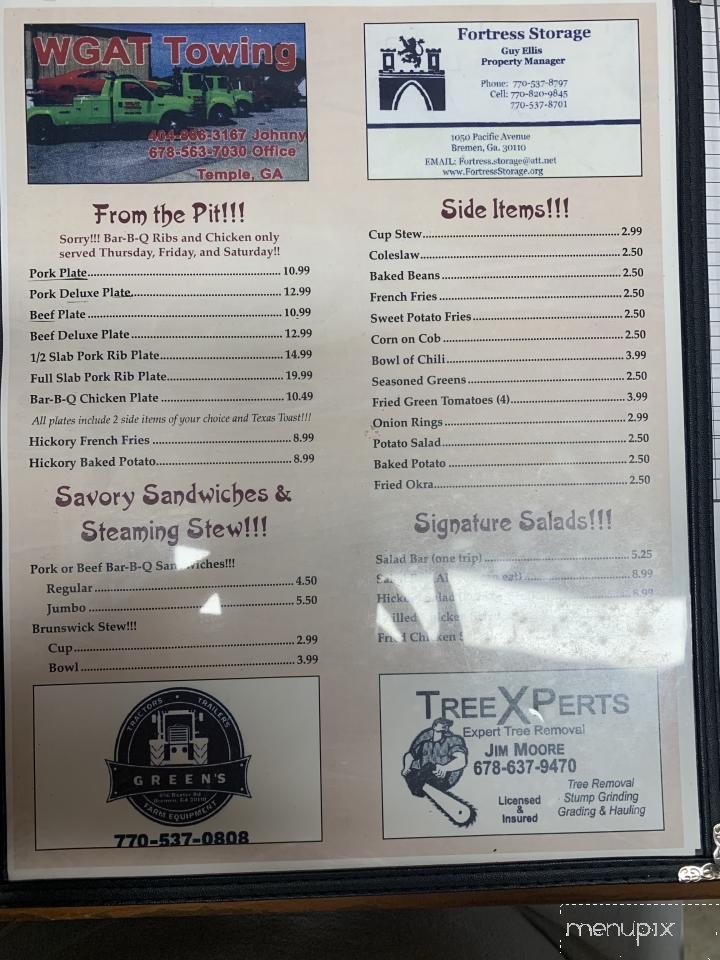 WGAT Towing
404-866-3167 Johnny
678-563-7030 Office
Temple, GA
Fortress Storage
Guy Ellis
Property Manager
Phone: 770-537-8797
Cell: 770-820-9845
770-537-8701
1050 Pacific Avenue
Bremen, Ga. 30110
EMAIL: Fortress.storage@att.net
www.FortressStorage.org
From the Pit!!!
Sorry!!! Bar-B-Q Ribs and Chicken only
served Thursday, Friday, and Saturday!!
Pork Plate 10.99
Pork Deluxe Plate 12.99
Beef Plate 10.99
Beef Deluxe Plate 12.99
1/2 Slab Pork Rib Plate 14.99
Full Slab Pork Rib Plate 19.99
Bar-B-Q Chicken Plate 10.49
All plates include 2 side items of your choice and Texas Toast!!!
Hickory French Fries 8.99
Hickory Baked Potato 8.99
Savory Sandwiches &
Steaming Stew!!!
Pork or Beef Bar-B-Q Sandwiches!!!
Regular 4.50
Jumbo 5.50
Brunswick Stew!!!
Cup 2.99
Bowl 3.99
Side Items!!!
Cup Stew 2.99
Coleslaw 2.50
Baked Beans 2.50
French Fries 2.50
Sweet Potato Fries 2.50
Corn on Cob 2.50
Bowl of Chili 3.99
Seasoned Greens 2.50
Fried Green Tomatoes (4) 3.99
Onion Rings 2.99
Potato Salad 2.50
Baked Potato 2.50
Fried Okra 2.50
Signature Salads!!!
Salad Bar (one trip) 5.25
eat) 8.99
8.99
Fried Chicken
TRACTORS • TRAILERS
GREEN'S
Bremen, GA 30110
FARM EQUIPMENT
770-537-0808
TREEXPERTS
Expert Tree Removal
JIM MOORE
678-637-9470
Licensed
&
Insured
Tree Removal
Stump Grinding
Grading & Hauling
menupix